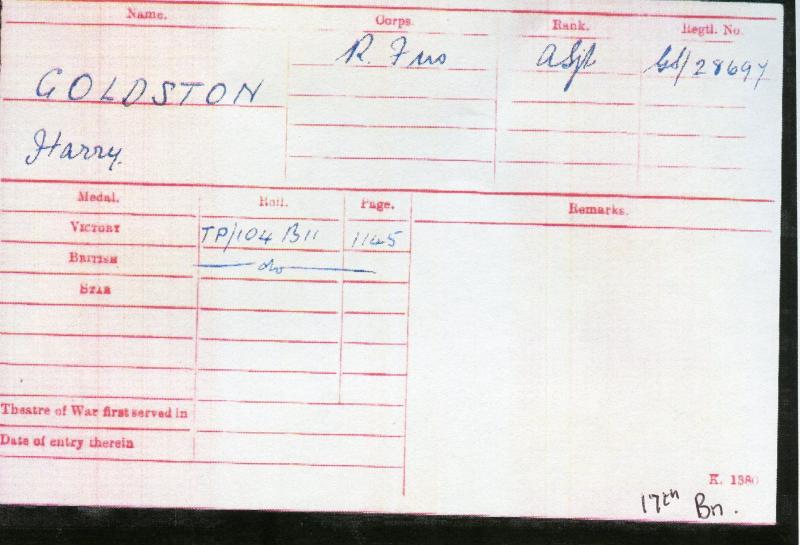 Name. Corps. Rank. Regtl. No.
R. Fus A Sjt GS/28697
GOLDSTON
Harry.
Medal. Roll. Page. Remarks.
VICTORY TP/104 B11 1145
BRITISH do
STAR
Theatre of War first served in
Date of entry therein
K. 1380
17th Bn.